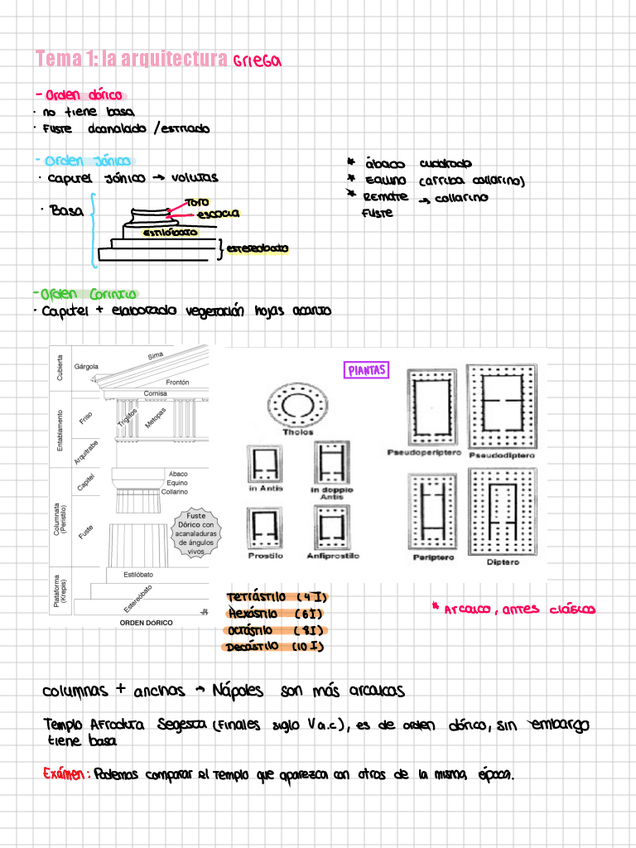 Tema 1: la arquitectura GRIEGA
- Orden dórico
· no tiene basa
· Fuste acanalado / estriado
- Orden Jónico
· capitel Jónico → volutas
· Basa
TORO
escocia
estilóbato
estereobato
* ábaco cuadrado
* Equino (arriba collarino)
* Remate → collarino
Fuste
- Orden Corintio
· Capitel + elaborado vegetación hojas acanto
Cubierta
Gárgola
Sima
Frontón
Cornisa
Entablamento
Friso
Triglifos
Metopas
Arquitrabe
Capitel
Ábaco
Equino
Collarino
Columnata
(Peristilo)
Fuste
Fuste
Dórico con
acanaladuras
de ángulos
vivos
Plataforma
(Krepis)
Estilóbato
Estereóbato
ORDEN DORICO
PLANTAS
Tholos
in Antis
in doppio
Antis
Prostilo
Anfiprostilo
Pseudoperiptero
Pseudodiptero
Periptero
Diptero
Tetrástilo (4 I)
Hexástilo (6 I)
Octástilo (8 I)
Decástilo (10 I)
* Arcaico, antes clásico
columnas + anchas → Nápoles son más arcaicas
Templo Afrodita Segesta (Finales siglo V a.c), es de orden dórico, sin embargo
tiene basa
Exámen: Podemos comparar el Templo que aparezca con otros de la misma época.